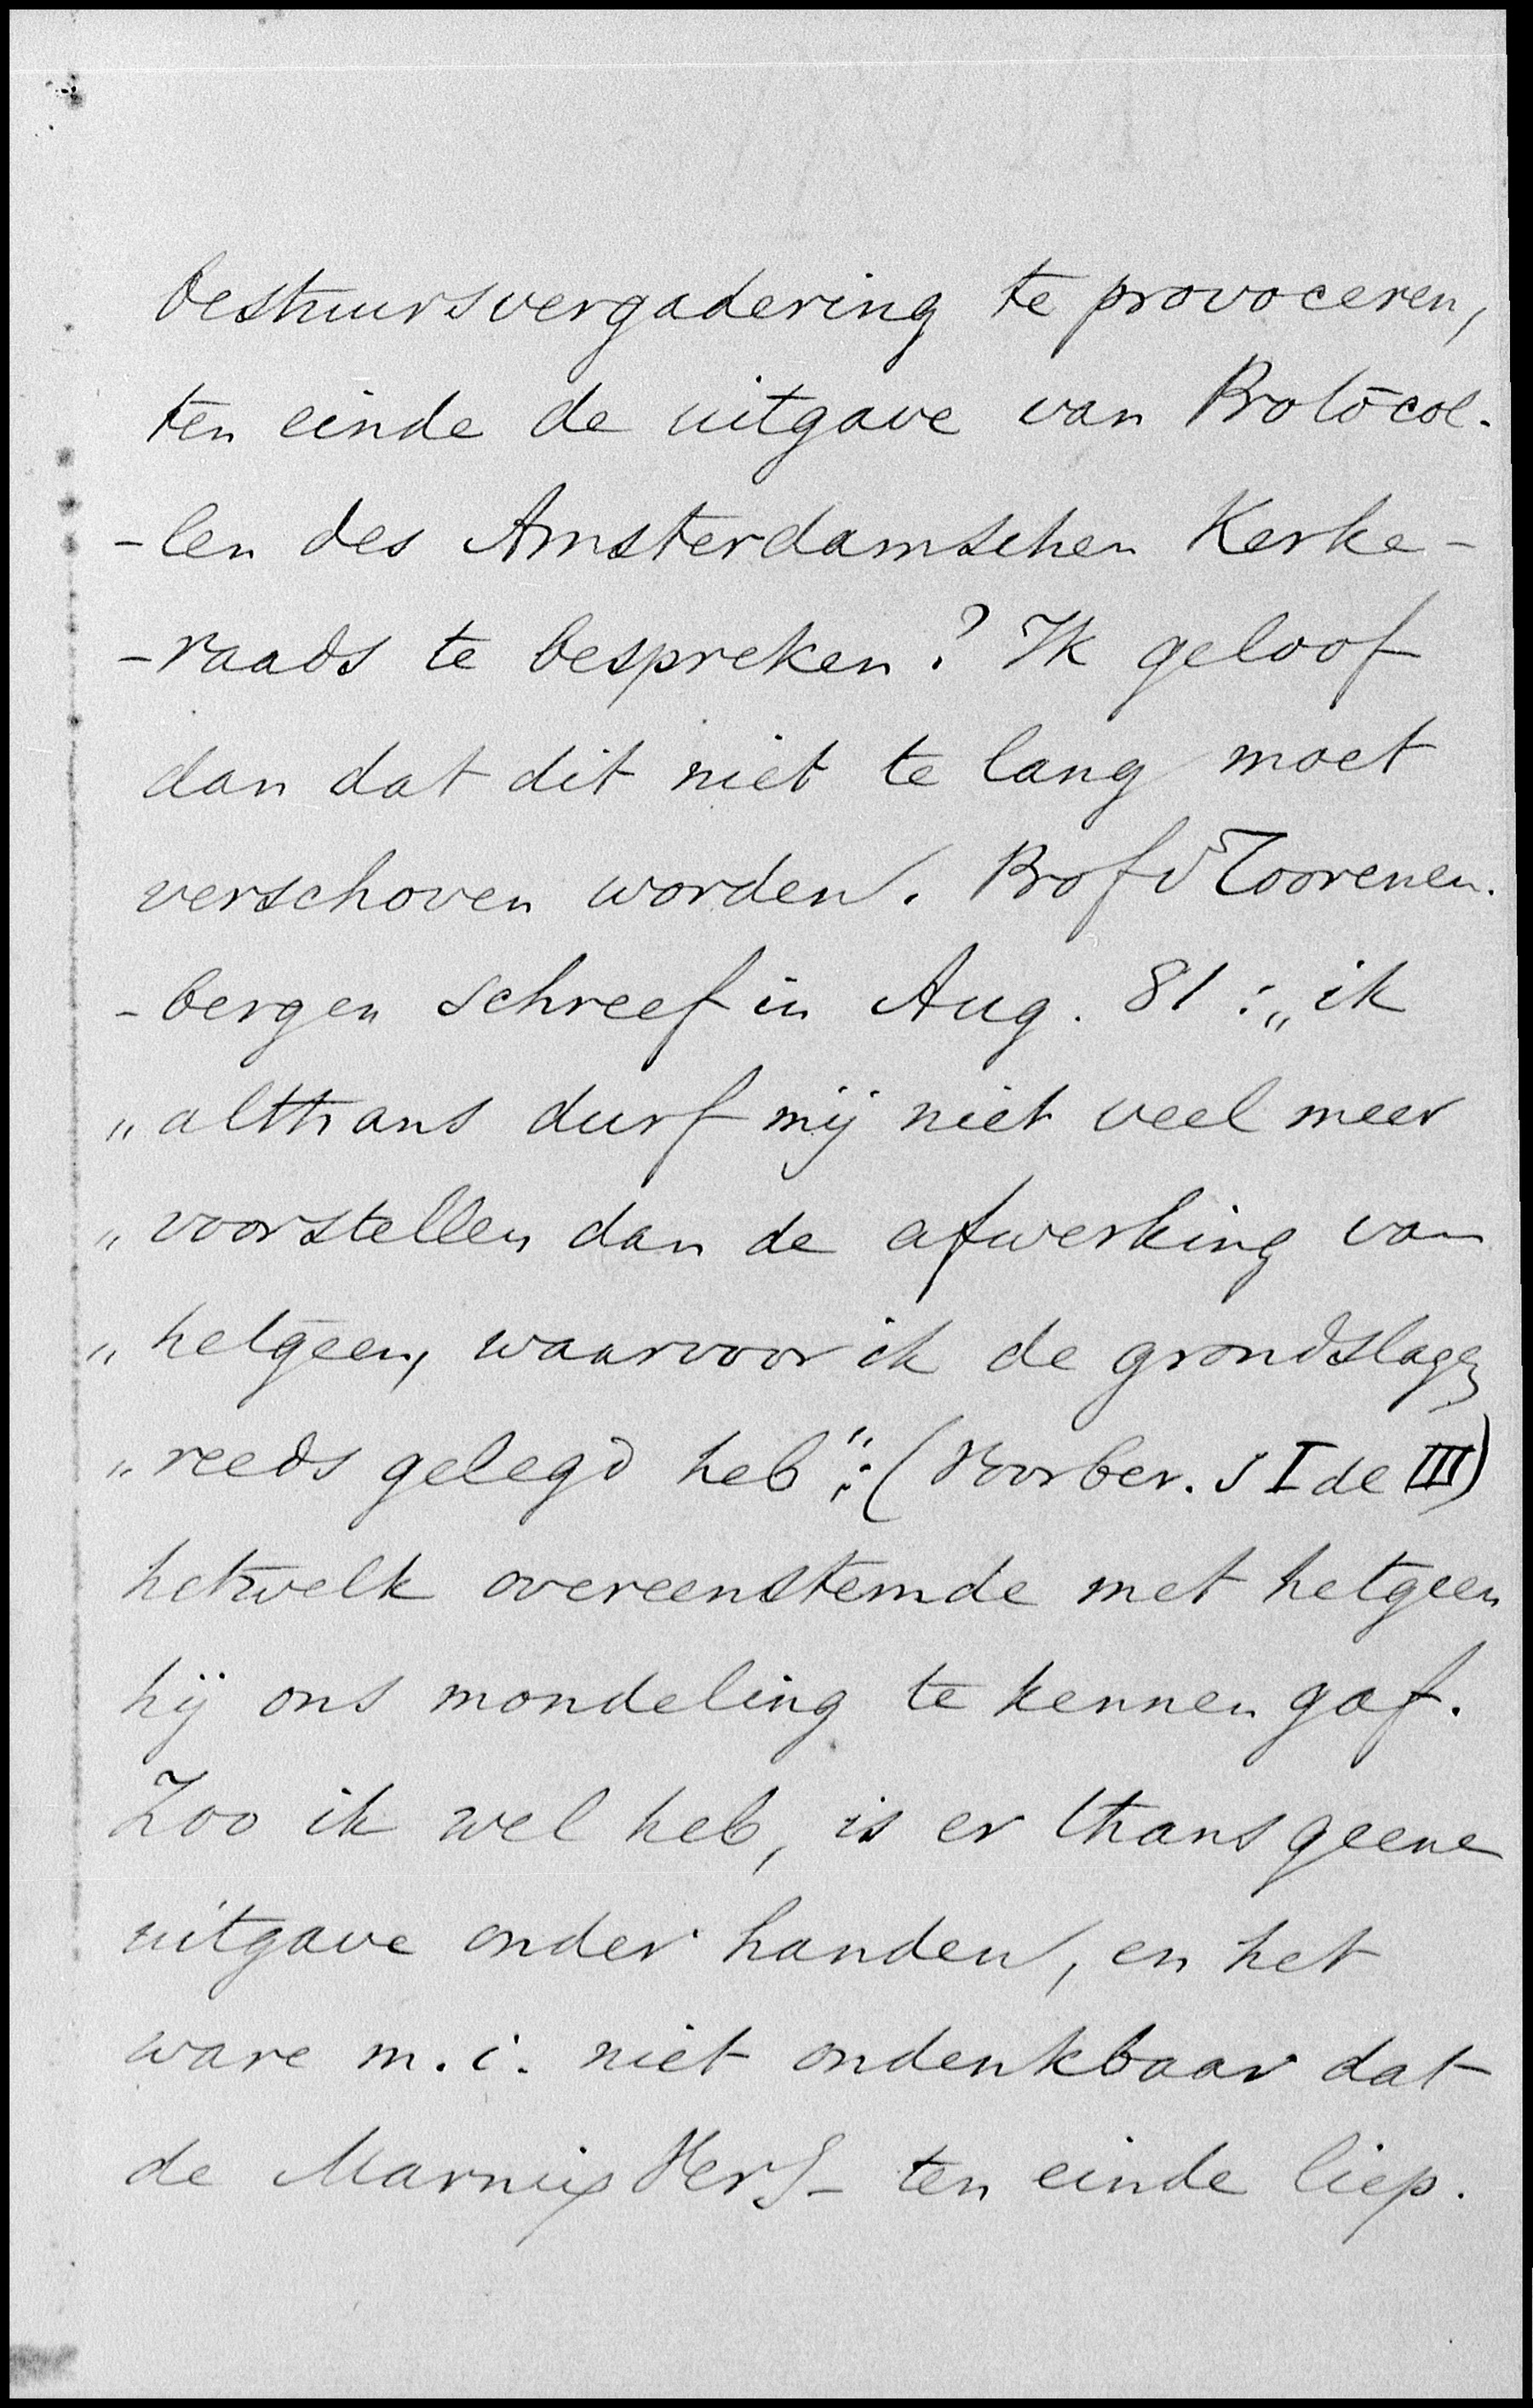 bestuursvergadering te provoceren,
ten einde de uitgave van Protocol-
-len des Amsterdamschen Kerke-
-raads te bespreken? Ik geloof
dan dat dit niet te lang moet
verschoven worden. Prof v Toorenen-
-bergen schreef in Aug. 81: „ik
„althans durf mij niet veel meer
„voorstellen dan de afwerking van
„hetgeen, waarvoor ik de grondslagen
„reeds gelegd heb": (Voorber. S I de III)
hetwelk overeenstemde met hetgeen
hij ons mondeling te kennen gaf.
Zoo ik wel heb, is er thans geene
uitgave onder handen, en het
ware m.i. niet ondenkbaar dat
de Marnix Ver- ten einde liep.